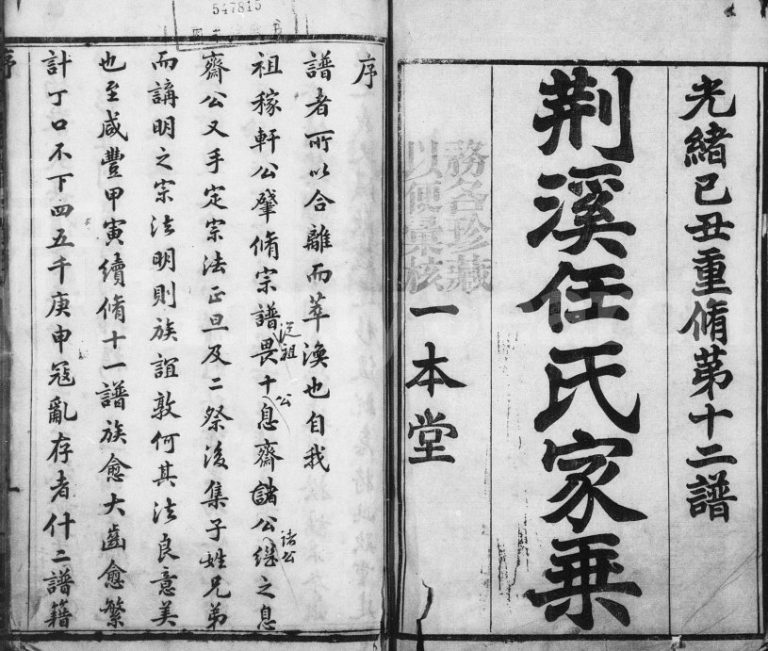 547815
光緒己丑重脩苐十二譜
荆溪任氏家乗
務各珍藏
以便彙核
一本堂
序
譜者所以合離而萃渙也自我
祖稼軒公肈脩宗譜畏十息齋諸公繼之息
從祖
公
諸公
齋公又手定宗法正旦及二祭後集子姓兄弟
而講明之宗法明則族誼敦何其法良意美
也至咸豐甲寅續脩十一譜族愈大齒愈繁
計丁口不下四五千庚申冦亂存者什二譜籍